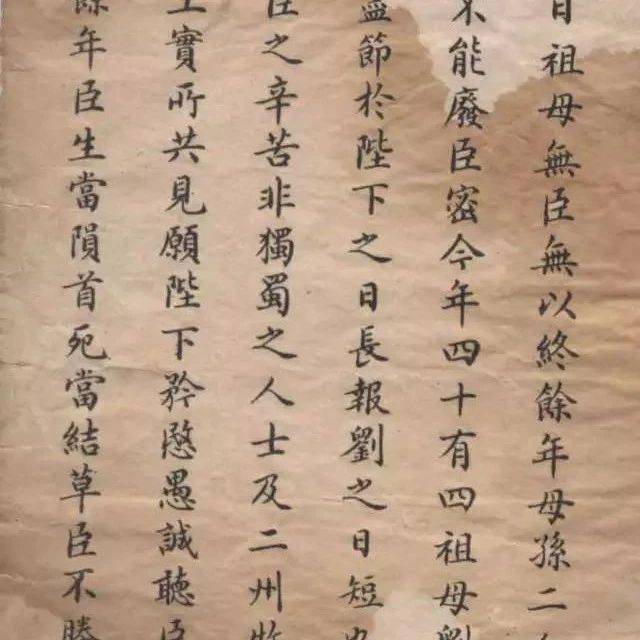 日祖母無臣無以終餘年母孫二
不能廢臣密今年四十有四祖母劉
盡節於陛下之日長報劉之日短也
臣之辛苦非獨蜀之人士及二州牧
土實所共見願陛下矜愍愚誠聽臣
餘年臣生當隕首死當結草臣不勝